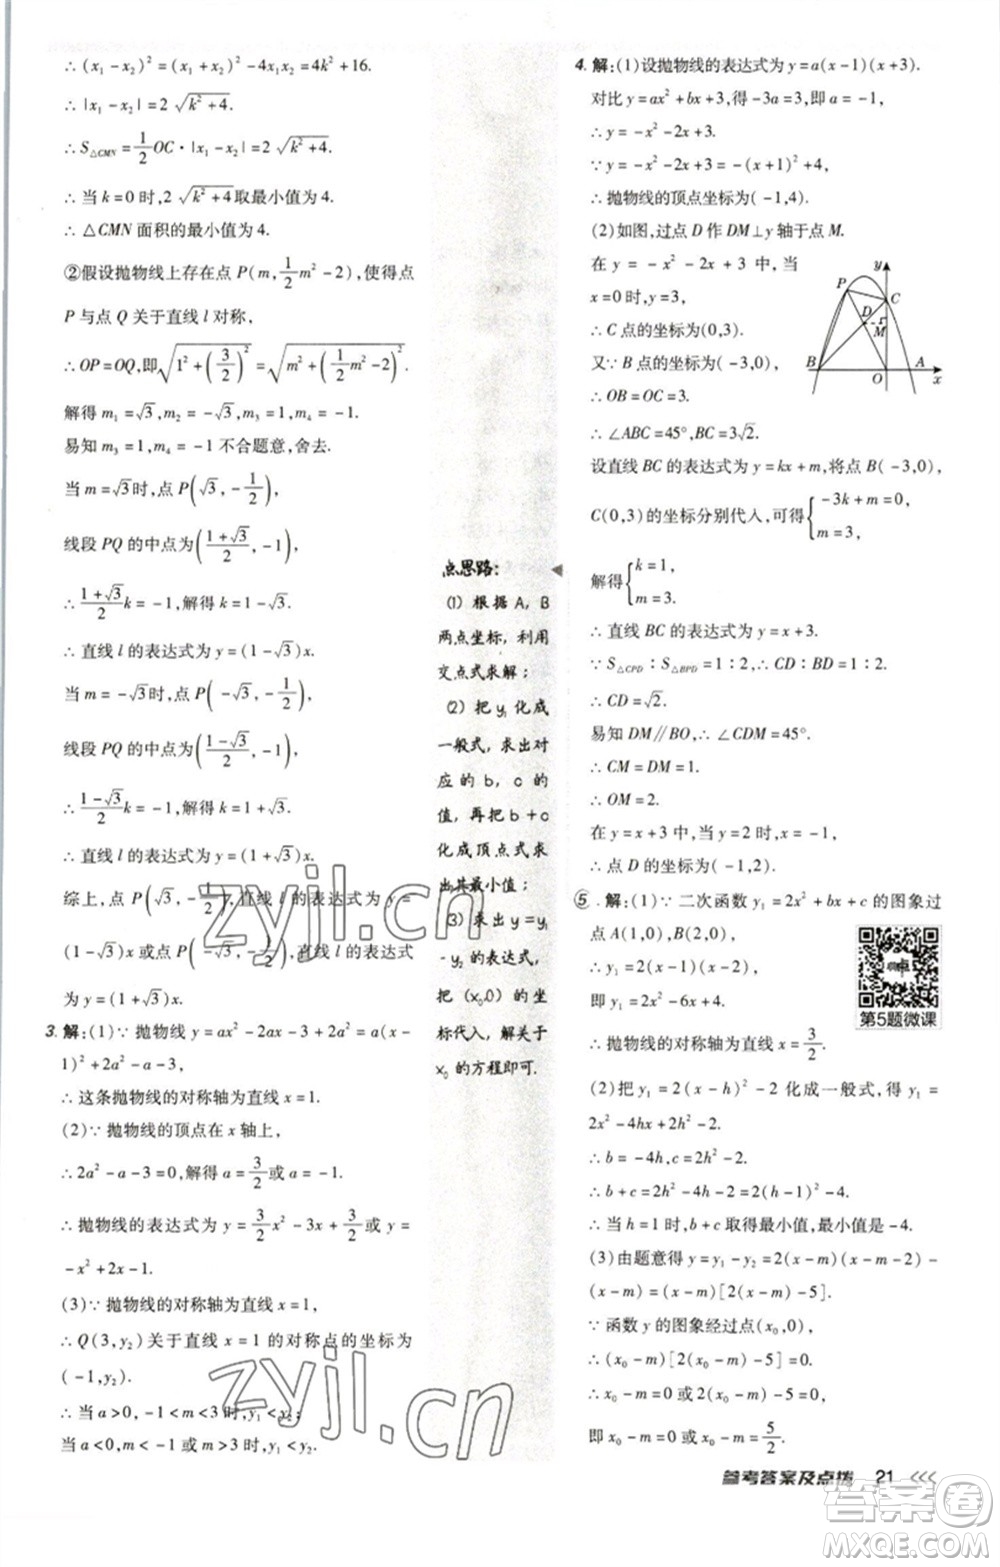 ∴ (x₁-x₂)²=(x₁+x₂)²-4x₁x₂=4k²+16.
∴ |x₁-x₂|=2√(k²+4).
∴ S△CMN=1/2 OC·|x₁-x₂|=2√(k²+4).
∴ 当 k=0 时,2√(k²+4)取最小值为 4.
∴ △CMN 面积的最小值为 4.
②假设抛物线上存在点 P(m, 1/2 m²-2),使得点
P 与点 Q 关于直线 l 对称,
∴ OP=OQ,即√(1²+(3/2)²)=√(m²+(1/2 m²-2)²).
解得 m₁=√3,m₂=-√3,m₃=1,m₄=-1.
易知 m₃=1,m₄=-1 不合题意,舍去.
当 m=√3时,点 P(√3,-1/2),
线段 PQ 的中点为((1+√3)/2,-1),
∴ (1+√3)/2 k=-1,解得 k=1-√3.
∴ 直线 l 的表达式为 y=(1-√3)x.
当 m=-√3时,点 P(-√3,-1/2),
线段 PQ 的中点为((1-√3)/2,-1),
∴ (1-√3)/2 k=-1,解得 k=1+√3.
∴ 直线 l 的表达式为 y=(1+√3)x.
综上,点 P(√3,-1/2),直线 l 的表达式为 y=
(1-√3)x 或点 P(-√3,-1/2),直线 l 的表达式
为 y=(1+√3)x.
3. 解:(1)∵ 抛物线 y=ax²-2ax-3+2a²=a(x-
1)²+2a²-a-3,
∴ 这条抛物线的对称轴为直线 x=1.
(2)∵ 抛物线的顶点在 x 轴上,
∴ 2a²-a-3=0,解得 a=3/2或 a=-1.
∴ 抛物线的表达式为 y=3/2x²-3x+3/2或 y=
-x²+2x-1.
(3)∵ 抛物线的对称轴为直线 x=1,
∴ Q(3,y₂)关于直线 x=1 的对称点的坐标为
(-1,y₂).
∴ 当 a>0,-1<m<3 时,y₁<y₂;
当 a<0,m<-1 或 m>3 时,y₁<y₂.
点思路:
(1) 根据 A, B
两点坐标, 利用
交点式求解;
(2) 把 y₁ 化成
一般式, 求出对
应的 b, c 的
值, 再把 b+c
化成顶点式求
出其最小值;
(3) 求出 y=y₁
-y₂ 的表达式,
把 (x₀,0) 的坐
标代入, 解关于
x₀ 的方程即可.
4. 解:(1)设抛物线的表达式为 y=a(x-1)(x+3).
对比 y=ax²+bx+3,得-3a=3,即 a=-1,
∴ y=-x²-2x+3.
∵ y=-x²-2x+3=-(x+1)²+4,
∴ 抛物线的顶点坐标为(-1,4).
(2)如图,过点 D 作 DM⊥y 轴于点 M.
在 y=-x²-2x+3 中,当
x=0时,y=3,
∴ C 点的坐标为(0,3).
又∵ B 点的坐标为(-3,0),
∴ OB=OC=3.
y
P
C
D
M
B
O
A
x
∴ ∠ABC=45°,BC=3√2.
设直线 BC 的表达式为 y=kx+m,将点 B(-3,0),
C(0,3)的坐标分别代入,可得{-3k+m=0, m=3,
解得{k=1, m=3.
∴ 直线 BC 的表达式为 y=x+3.
∵ S△CPD∶S△BPD=1∶2,∴ CD∶BD=1∶2.
∴ CD=√2.
易知 DM∥BO,∴ ∠CDM=45°.
∴ CM=DM=1.
∴ OM=2.
在 y=x+3 中,当 y=2 时,x=-1,
∴ 点 D 的坐标为(-1,2).
⑤. 解:(1)∵ 二次函数 y₁=2x²+bx+c 的图象过
点 A(1,0),B(2,0),
∴ y₁=2(x-1)(x-2),
即 y₁=2x²-6x+4.
第5题微课
∴ 抛物线的对称轴为直线 x=3/2.
(2)把 y₁=2(x-h)²-2 化成一般式,得 y₁=
2x²-4hx+2h²-2.
∴ b=-4h,c=2h²-2.
∴ b+c=2h²-4h-2=2(h-1)²-4.
∴ 当 h=1 时,b+c 取得最小值,最小值是-4.
(3)由题意得 y=y₁-y₂=2(x-m)(x-m-2)-
(x-m)=(x-m)[2(x-m)-5].
∵ 函数 y 的图象经过点(x₀,0),
∴ (x₀-m)[2(x₀-m)-5]=0.
∴ x₀-m=0 或2(x₀-m)-5=0,
即 x₀-m=0 或 x₀-m=5/2.
参考答案及点拨 21
zyjl.cn
zyjl.cn
答案圈
MXQE.COM